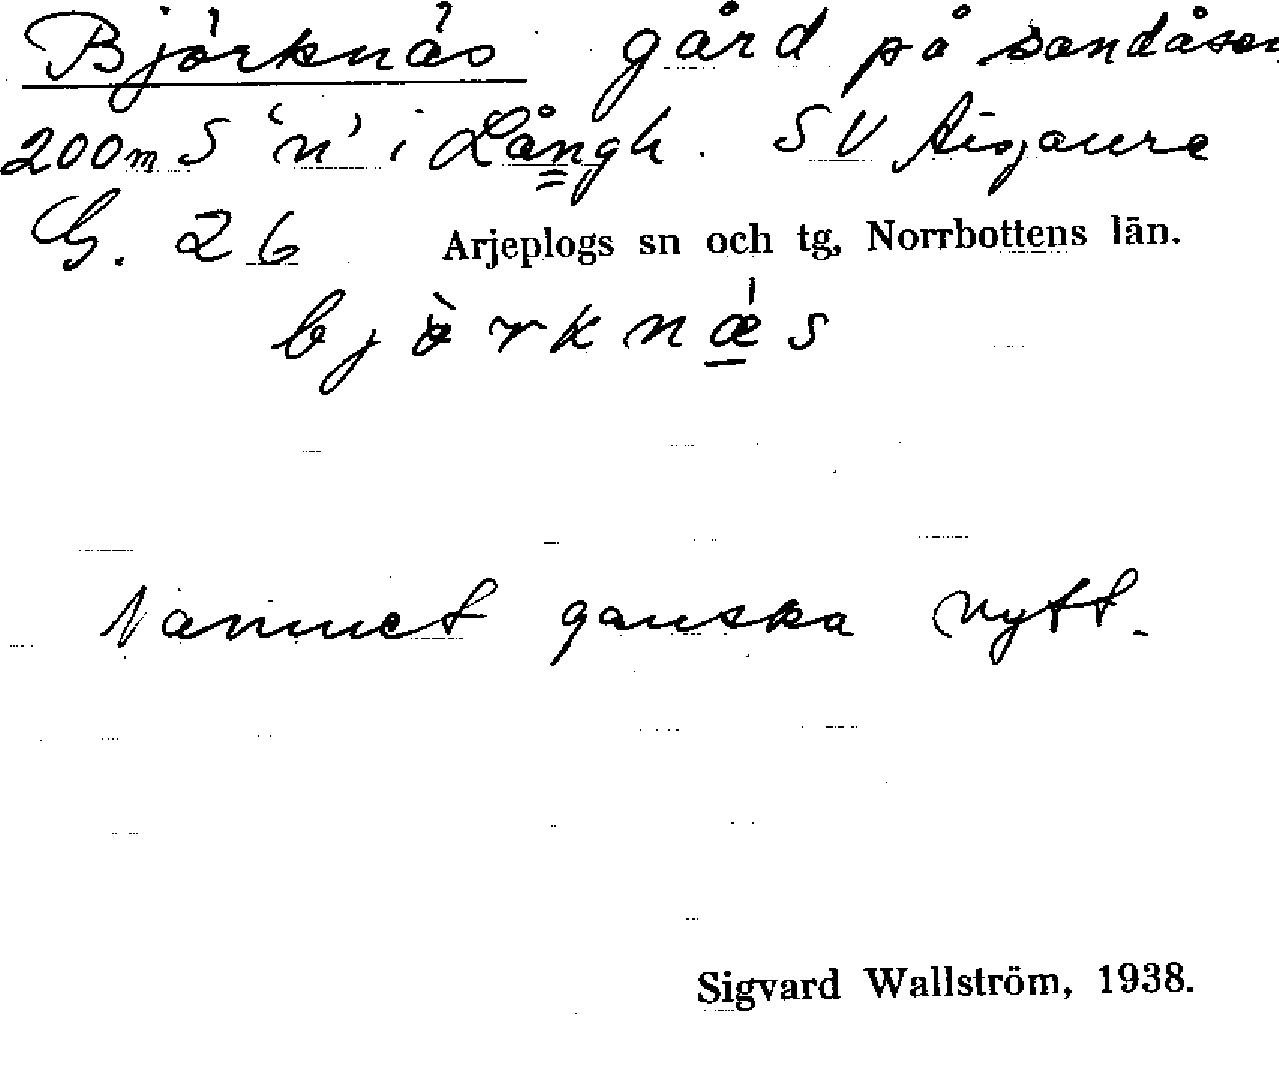 Björknäs gård på sandåsen
200m S 'n' i Långh. SV Aisjaure
G. 26 Arjeplogs sn och tg, Norrbottens län.
bjö̀rknǽs
Namnet ganska nytt.
Sigvard Wallström, 1938.